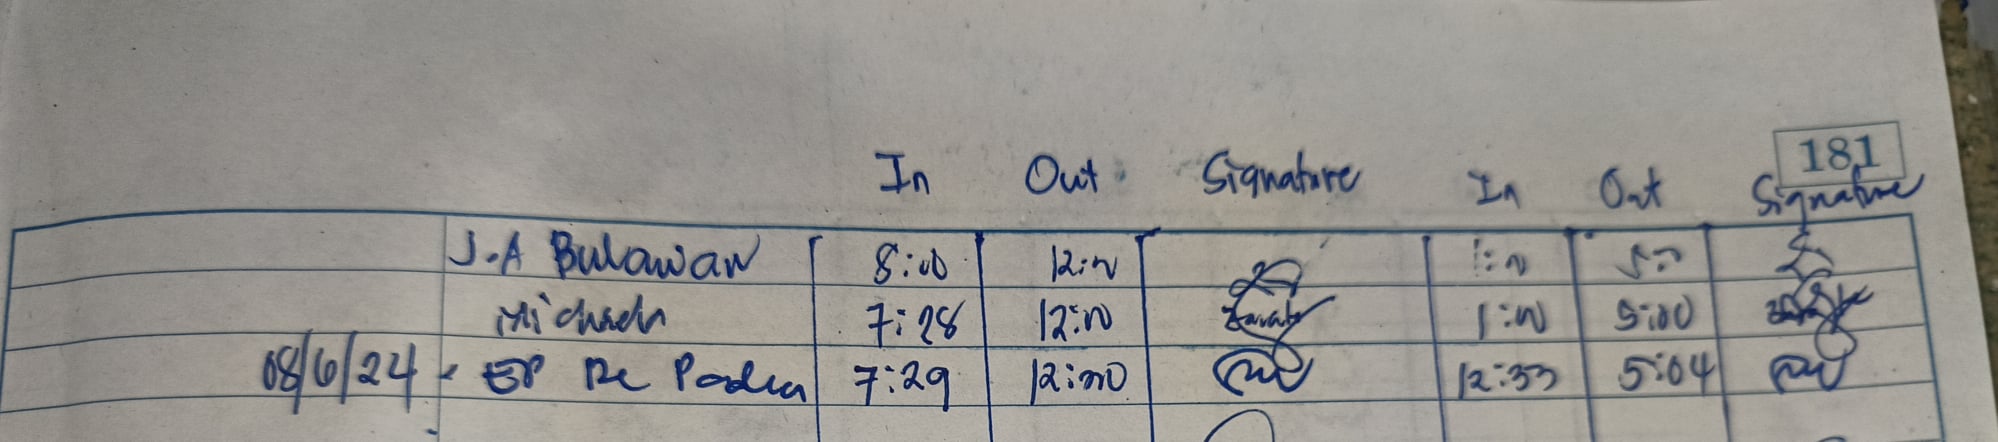 181
In Out Signature In Out Signature
J.A Bulawan 8:00 12:00 1:00 5:00
7:28 12:00 1:00 5:00
08/6/24 EP De Padua 7:29 12:00 12:33 5:04